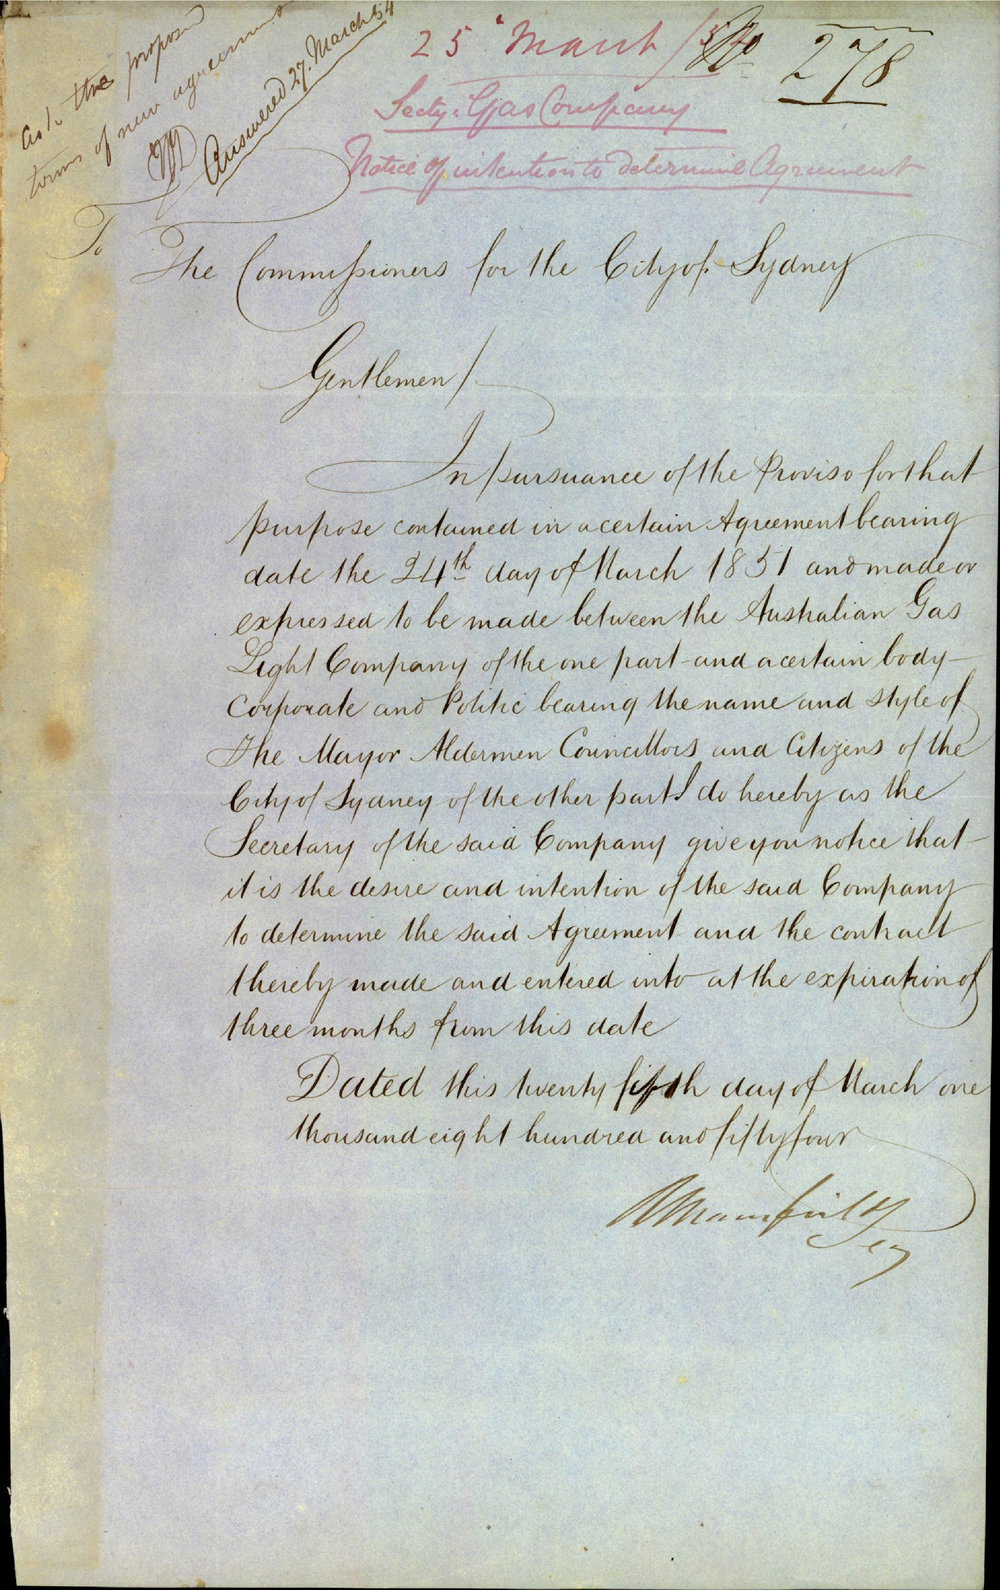 ask the proposed
terms of new agreement
Answered 27. March 54
25 March /54
No 278
Secty: Gas Company
Notice of intention to determine Agreement
To
The Commissioners for the City of Sydney
Gentlemen/
In pursuance of the Proviso for that
purpose contained in a certain Agreement bearing
date the 24th day of March 1851 and made or
expressed to be made between the Australian Gas
Light Company of the one part and a certain body
corporate and Politic bearing the name and style of
The Mayor Aldermen Councillors and Citizens of the
City of Sydney of the other part I do hereby as the
Secretary of the said Company give you notice that
it is the desire and intention of the said Company
to determine the said Agreement and the contract
thereby made and entered into at the expiration of
three months from this date
Dated this twenty fifth day of March one
thousand eight hundred and fifty four
Mansfield
Secy